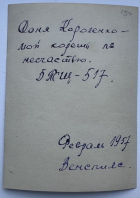 Даня Короленко -
мой кореш по
несчастью.
БТЩ - 517.
Февраль 1957
Вентспилс.